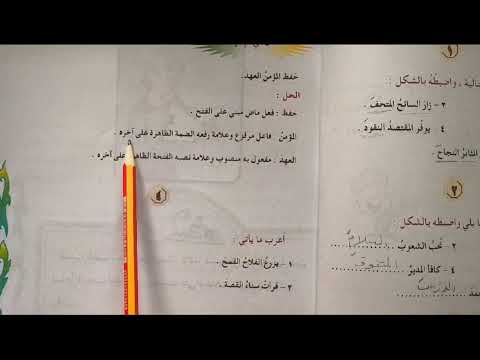 ١
تالية ، واضبطه بالشكل :
٢ - زار السائحُ المتحفَ .
٤ - يوفّر المقتصدُ النقودَ .
المثابرُ النجاحَ .
٢
ما يلي واضبطه بالشكل :
٢ - تُحبّ الشعوبُ السلامَ
٤ - كافأ المديرُ
حفظ المؤمنُ العهد.
الحل :
حفظ : فعل ماض مبني على الفتح .
المؤمنُ فاعل مرفوع وعلامة رفعه الضمة الظاهرة على آخره .
العهدَ . مفعول به منصوب وعلامة نصبه الفتحة الظاهرة على آخره .
٤
أعرب ما يأتي :
١ - يزرعُ الفلاحُ القمحَ .
٢ - قرأتْ سناءُ القصة .